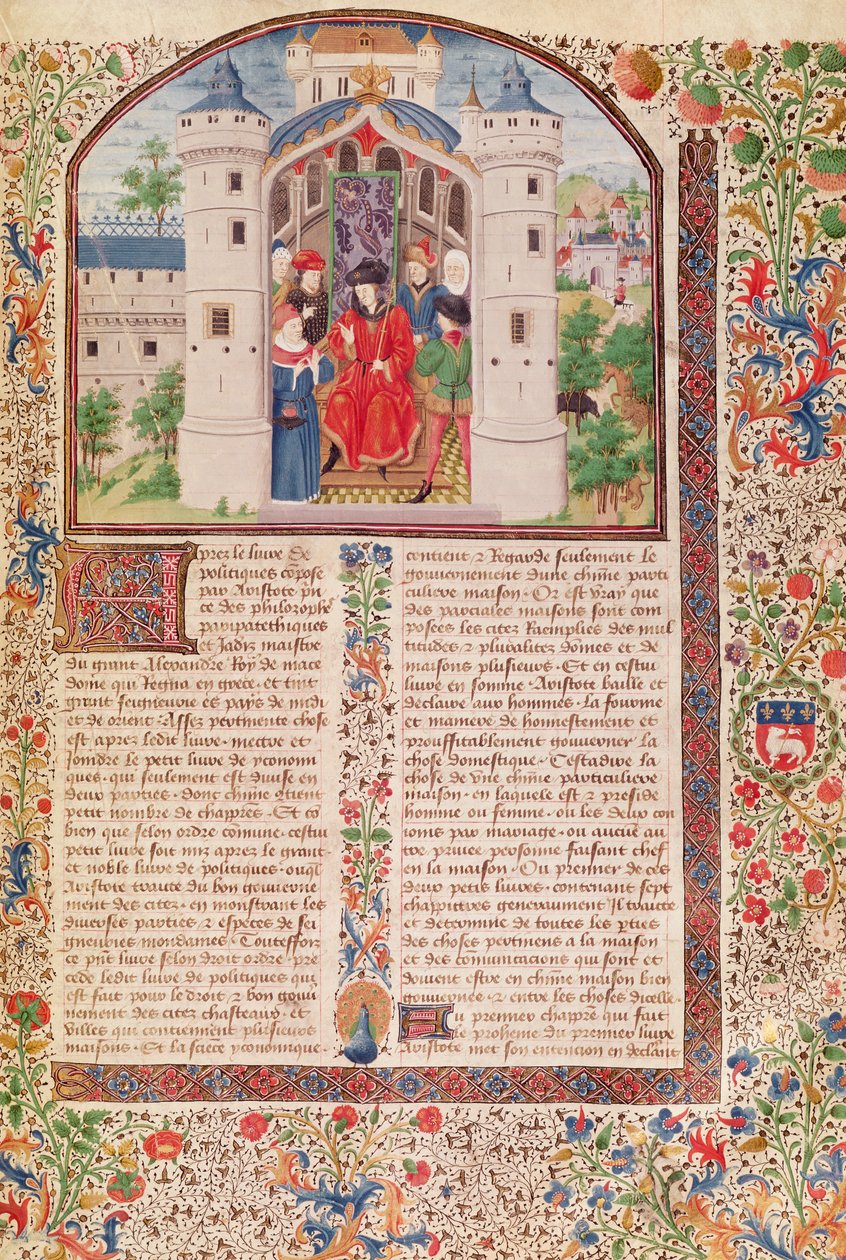 Aprez le livre de
politiques cōpose
par Aristote prī
ce des philozophes
paripathethiques
et Jadiz maistre
du grant Alexandre Roy de mace
doine qui Regna en grece et tint
grant seigneurie es pays de midi
et de orient Assez pertinente chose
est aprez ledit livre mettre et
Joindre le petit livre de yconomi
ques qui seulement est divise en
deux parties donc chūne 9tient
petit nombre de chapp̄res Et cō
bien que selon ordre comune cestui
petit livre soit miz aprez le grant
et noble livre de politiques ouql̄
Aristote traicte du bon gouverne
ment des citez en monstrant les
diverses parties & especes de sei
gneuries mondaines Toutesfoiz
ce pn̄t livre selon droit ordre pre
cede ledit livre de politiques qui
est fait pour le droit & bon gouv̄
nement des citez chasteaux et
villes qui contiennent plusieurs
maisons Et la sciēce yconomique
contient & Regarde seulement le
gouvernement dune chūne parti
culiere maison Or est vray que
des parciales maisons sont com
posees les citez Raemplies des mul
titudes & pluralitez dōmes et de
maisons plusieurs Et en cestui
livre en somme Aristote baille et
declaire aux hommes La fourme
et maniere de honnestement et
prouffitablement gouverner la
chose domestique Cestadire la
chose de vne chūne particuliere
maison en laquele est & preside
homme ou femme ou les deux con
ioins par mariage ou aucūe au
tre privee personne faisant chef
en la maison Ou premier de ces
deux petis livres contenant sept
chappitres generaument Il traicte
et determine de toutes les p̄ties
des choses pertinens a la maison
et des comunicacions qui sont et
doivent estre en chūne maison bien
gouvernee & entre les choses dicelle
Eu premier chapp̄re qui fait
le proheme du premier livre
Aristote met son entencion en declairant